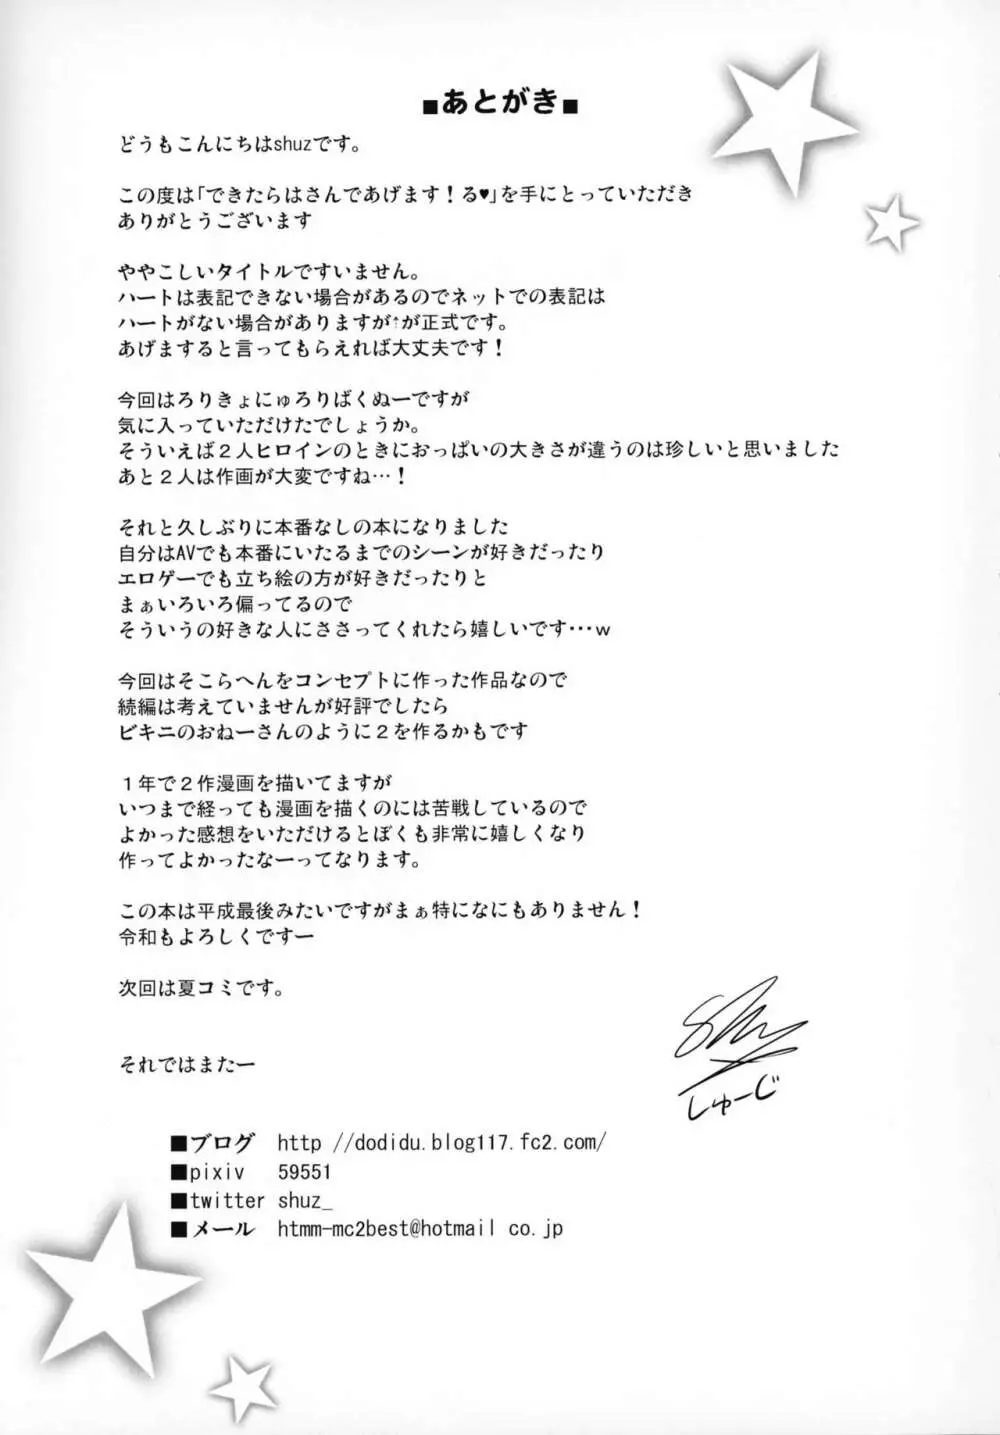 ■あとがき■
どうもこんにちはshuzです。
この度は「できたらはさんであげます！る♥」を手にとっていただき
ありがとうございます
ややこしいタイトルですいません。
ハートは表記できない場合があるのでネットでの表記は
ハートがない場合がありますが↑が正式です。
あげますると言ってもらえれば大丈夫です！
今回はろりきょにゅろりばくぬーですが
気に入っていただけたでしょうか。
そういえば２人ヒロインのときにおっぱいの大きさが違うのは珍しいと思いました
あと２人は作画が大変ですね…！
それと久しぶりに本番なしの本になりました
自分はAVでも本番にいたるまでのシーンが好きだったり
エロゲーでも立ち絵の方が好きだったりと
まぁいろいろ偏ってるので
そういうの好きな人にささってくれたら嬉しいです…ｗ
今回はそこらへんをコンセプトに作った作品なので
続編は考えていませんが好評でしたら
ビキニのおねーさんのように２を作るかもです
１年で２作漫画を描いてますが
いつまで経っても漫画を描くのには苦戦しているので
よかった感想をいただけるとぼくも非常に嬉しくなり
作ってよかったなーってなります。
この本は平成最後みたいですがまぁ特になにもありません！
令和もよろしくですー
次回は夏コミです。
それではまたー
shuz
しゅーじ
■ブログ http //dodidu.blog117.fc2.com/
■pixiv 59551
■twitter shuz_
■メール htmm-mc2best@hotmail co.jp